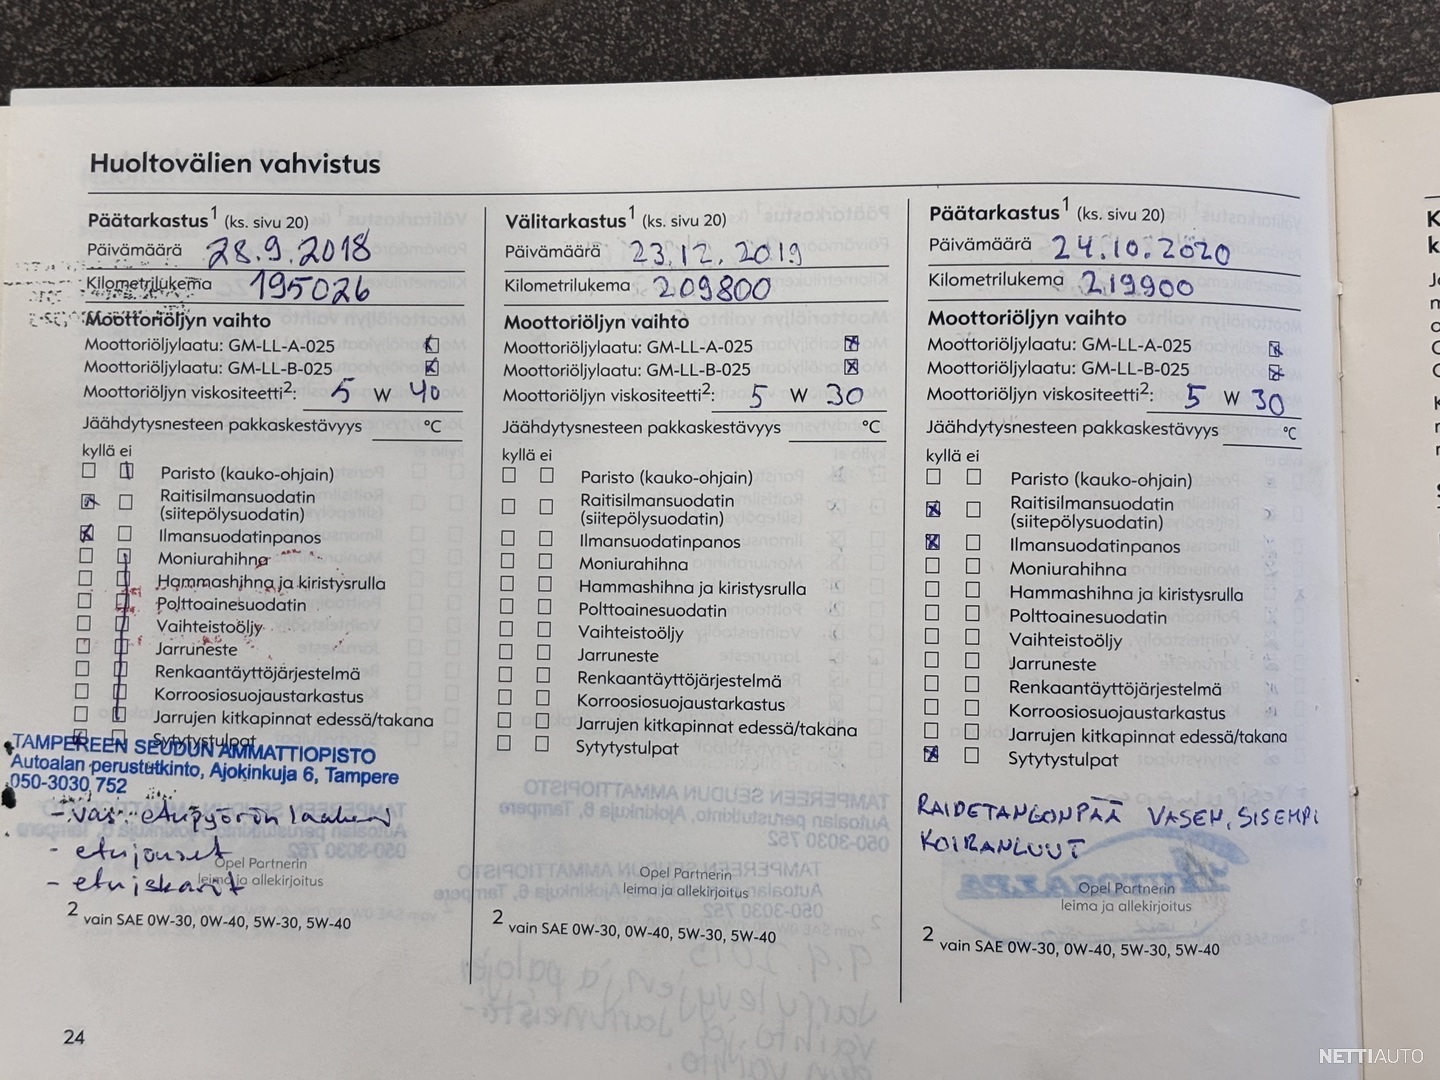 Huoltovälien vahvistus
Päätarkastus1 (ks. sivu 20)
Päivämäärä 28.9.2018
Kilometrilukema 195026
Moottoriöljyn vaihto
Moottoriöljylaatu: GM-LL-A-025
Moottoriöljylaatu: GM-LL-B-025
Moottoriöljyn viskositeetti2: 5 W 40
Jäähdytysnesteen pakkaskestävyys °C
kyllä ei
Paristo (kauko-ohjain)
Raitisilmansuodatin
(siitepölysuodatin)
Ilmansuodatinpanos
Moniurahihna
Hammashihna ja kiristysrulla
Polttoainesuodatin
Vaihteistoöljy
Jarruneste
Renkaantäyttöjärjestelmä
Korroosiosuojaustarkastus
Jarrujen kitkapinnat edessä/takana
Sytytystulpat
TAMPEREEN SEUDUN AMMATTIOPISTO
Autoalan perustutkinto, Ajokinkuja 6, Tampere
050-3030 752
- vas. etupyörän laakeri
- etujouset
- etuiskarit
Opel Partnerin
leima ja allekirjoitus
2 vain SAE 0W-30, 0W-40, 5W-30, 5W-40
24
Välitarkastus1 (ks. sivu 20)
Päivämäärä 23.12.2019
Kilometrilukema 209800
Moottoriöljyn vaihto
Moottoriöljylaatu: GM-LL-A-025
Moottoriöljylaatu: GM-LL-B-025
Moottoriöljyn viskositeetti2: 5 W 30
Jäähdytysnesteen pakkaskestävyys °C
kyllä ei
Paristo (kauko-ohjain)
Raitisilmansuodatin
(siitepölysuodatin)
Ilmansuodatinpanos
Moniurahihna
Hammashihna ja kiristysrulla
Polttoainesuodatin
Vaihteistoöljy
Jarruneste
Renkaantäyttöjärjestelmä
Korroosiosuojaustarkastus
Jarrujen kitkapinnat edessä/takana
Sytytystulpat
Opel Partnerin
leima ja allekirjoitus
2 vain SAE 0W-30, 0W-40, 5W-30, 5W-40
Päätarkastus1 (ks. sivu 20)
Päivämäärä 24.10.2020
Kilometrilukema 219900
Moottoriöljyn vaihto
Moottoriöljylaatu: GM-LL-A-025
Moottoriöljylaatu: GM-LL-B-025
Moottoriöljyn viskositeetti2: 5 W 30
Jäähdytysnesteen pakkaskestävyys °C
kyllä ei
Paristo (kauko-ohjain)
Raitisilmansuodatin
(siitepölysuodatin)
Ilmansuodatinpanos
Moniurahihna
Hammashihna ja kiristysrulla
Polttoainesuodatin
Vaihteistoöljy
Jarruneste
Renkaantäyttöjärjestelmä
Korroosiosuojaustarkastus
Jarrujen kitkapinnat edessä/takana
Sytytystulpat
RAIDETANGONPÄÄ VASEN, SISEMPI
KOIRANLUUT
Opel Partnerin
leima ja allekirjoitus
2 vain SAE 0W-30, 0W-40, 5W-30, 5W-40
NETTIAUTO